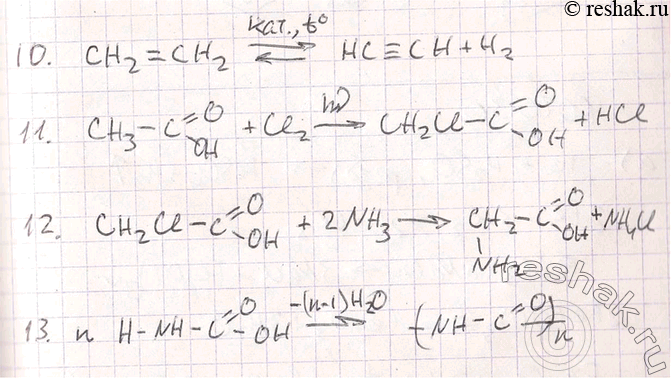 © reshak.ru
10. CH₂=CH₂ ⇌ (кат., t°) HC≡CH + H₂
11. CH₃-C(=O)OH + Cl₂ →(hν) CH₂Cl-C(=O)OH + HCl
12. CH₂Cl-C(=O)OH + 2NH₃ → CH₂(NH₂)-C(=O)OH + NH₄Cl
13. n H-NH-C(=O)OH ⇌ (-(n-1)H₂O) (-NH-C(=O)-)n
reshak.ru